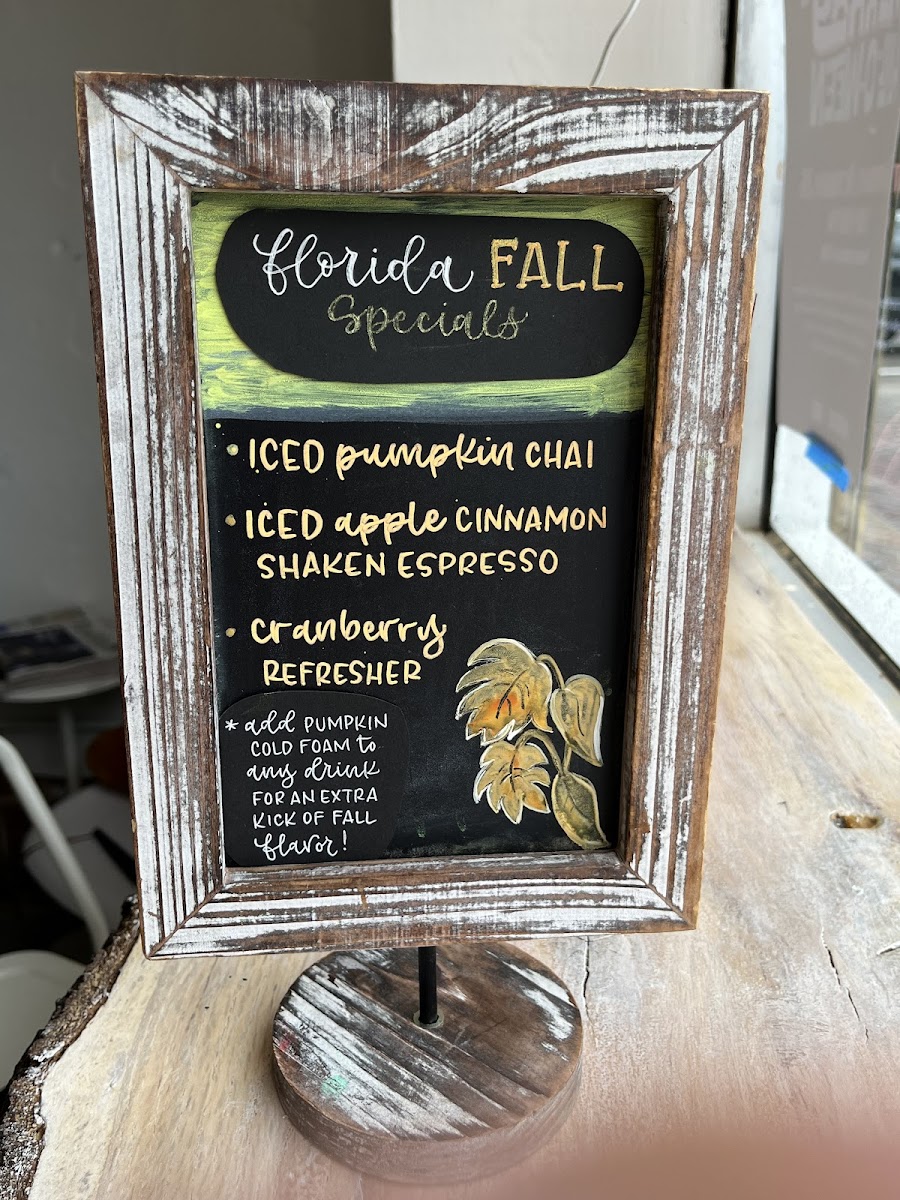 florida FALL
Specials
• ICED pumpkin CHAI
• ICED apple CINNAMON
SHAKEN ESPRESSO
• cranberry
REFRESHER
* add PUMPKIN
COLD FOAM to
any drink
FOR AN EXTRA
KICK OF FALL
flavor!